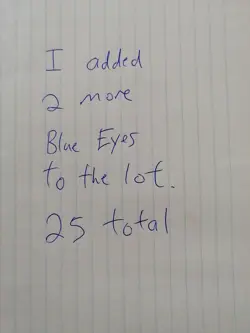 I added
2 more
Blue Eyes
to the lot.
25 total